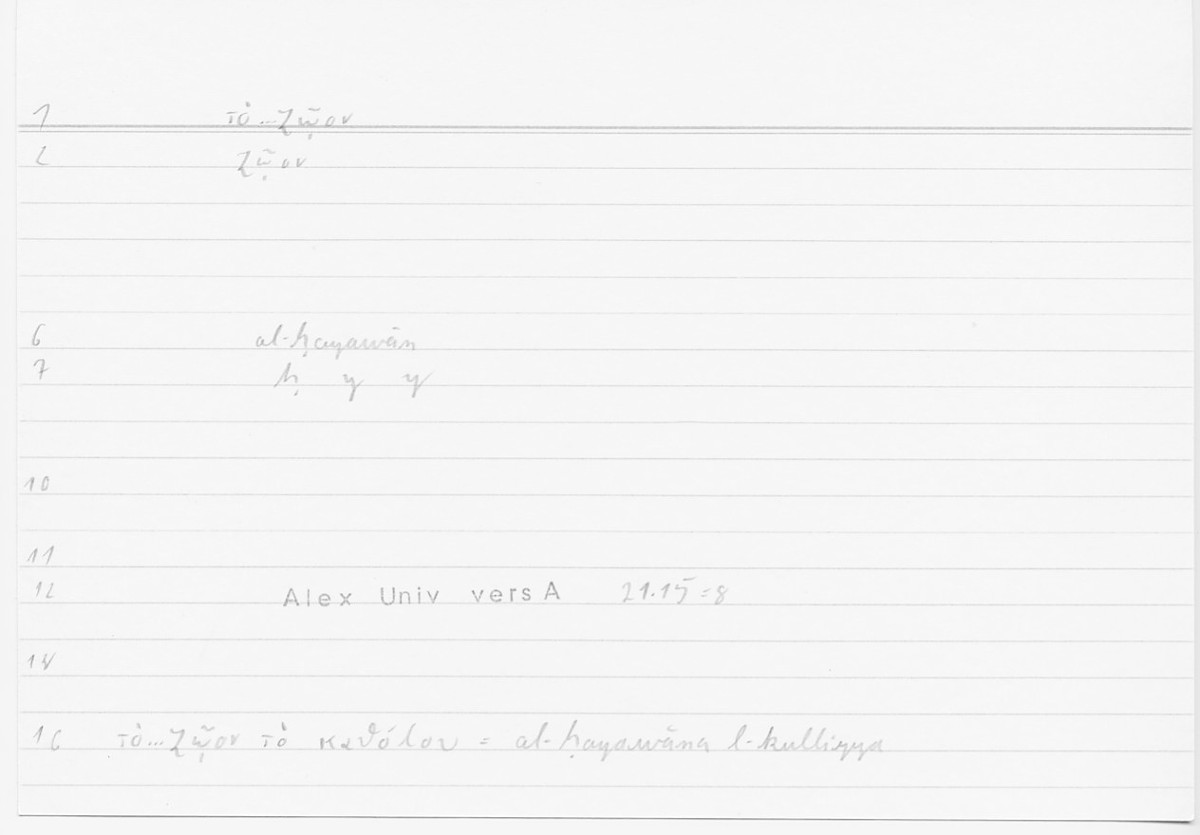 1 τὸ...ζῷον
2 ζῷον
6 al-ḥayawān
7 ḥ y y
10
11
12 Alex Univ vers A 21.15=8
14
16 τὸ...ζῷον τὸ καθόλου = al-ḥayawāna l-kulliyya